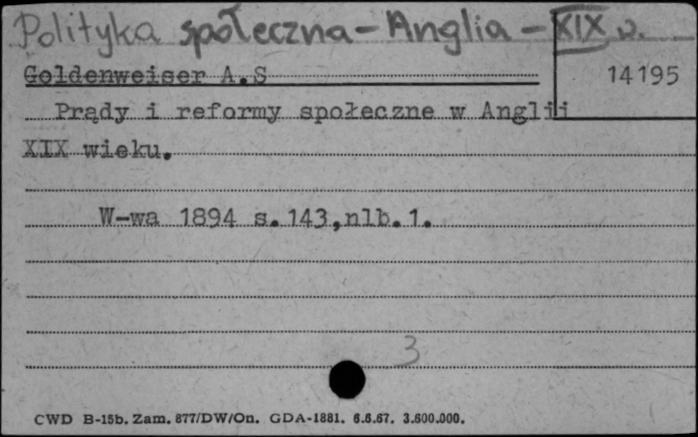 Polityka społeczna - Anglia - XIX w.
Goldenweiser A.S
14195
Prądy i reformy społeczne w Anglii
XIX wieku.
W-wa 1894 s.143,nlb.1.
3
CWD B-15b. Zam. 877/DW/On. GDA-1881. 6.6.67. 3.600.000.